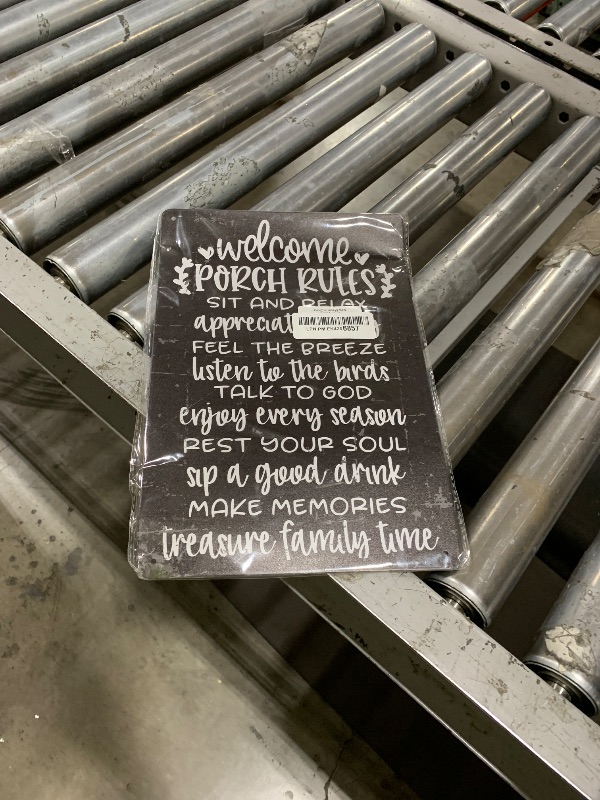 welcome
PORCH RULES
SIT AND RELAX
appreciat
FEEL THE BREEZE
listen to the birds
TALK TO GOD
enjoy every season
REST YOUR SOUL
sip a good drink
MAKE MEMORIES
treasure family time